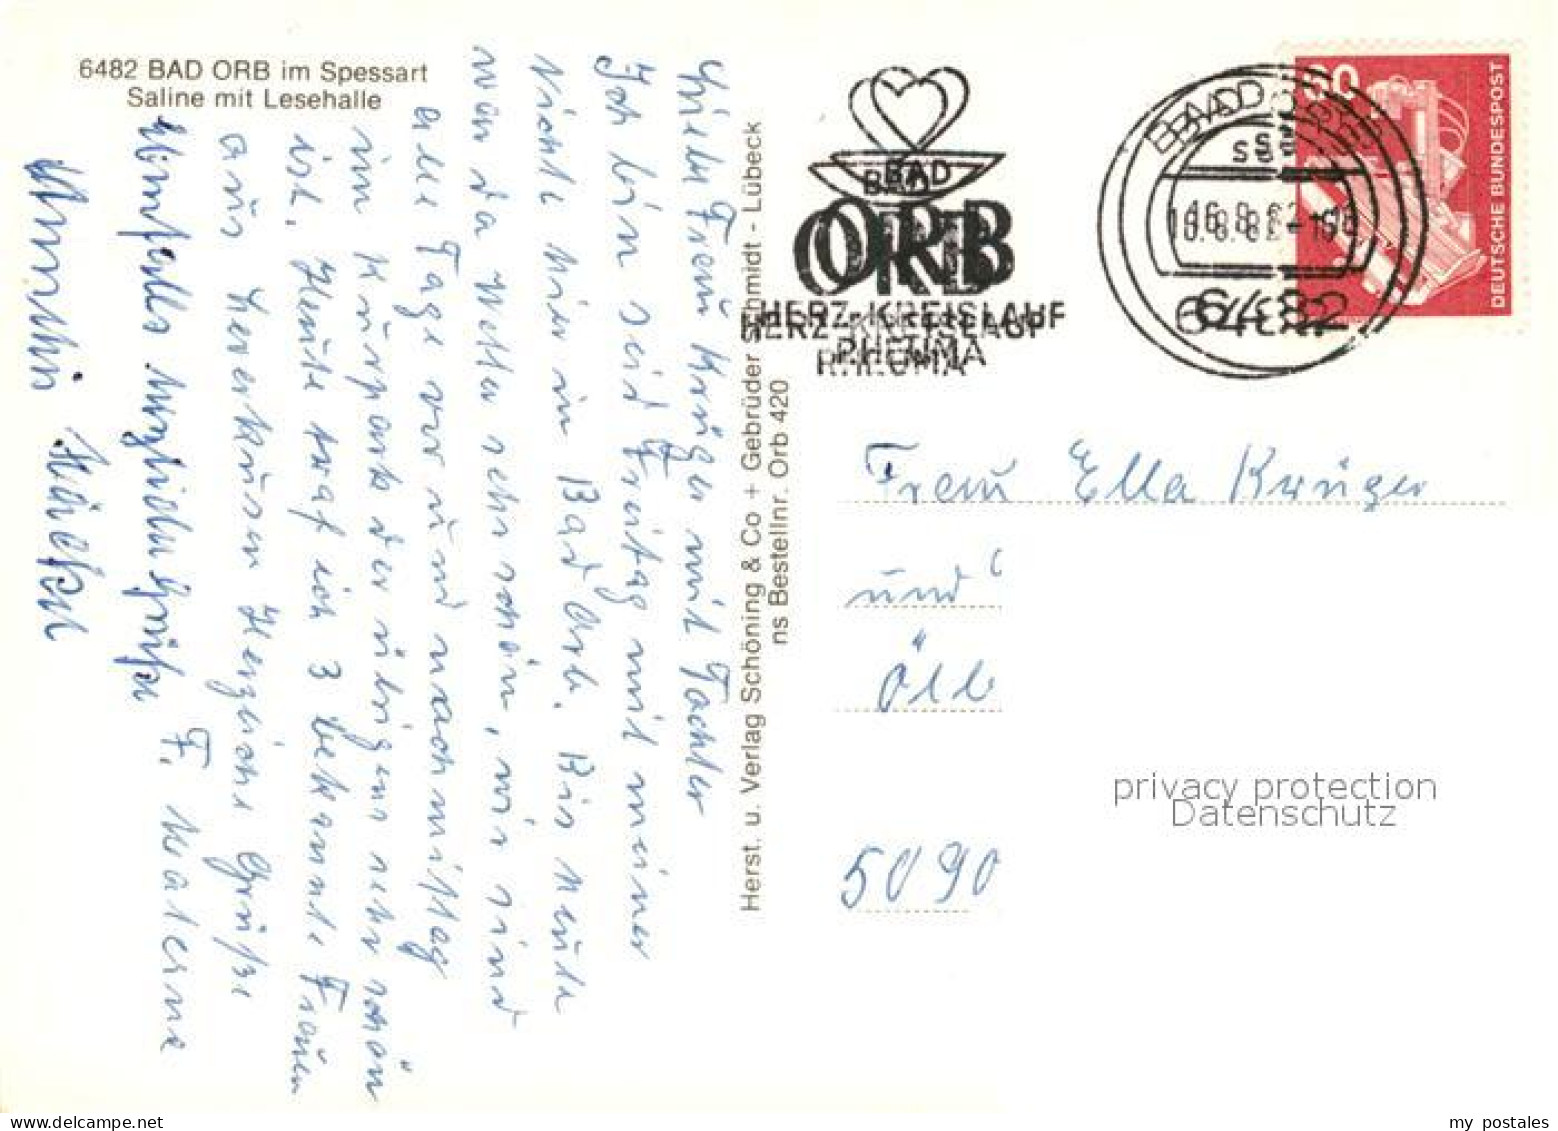 6482 BAD ORB im Spessart
Saline mit Lesehalle
Liebe Frau Krüger mit Tochter
Ich bin seid Freitag mit meiner
Nichte hier in Bad Orb. Bis heute
war da Wetter sehr schön, wir sind
alle Tage vor und nachmittag
im Kurpark der übrigens sehr schön
ist. Heute traf ich 3 bekannte Frauen
aus Leverkusen Herzliche Grüße
F. Materne
Ebenfalls herzliche Grüße
Herst. u. Verlag Schöning & Co + Gebrüder Schmidt - Lübeck
ns Bestellnr. Orb 420
BAD
ORB
HERZ-KREISLAUF
RHEUMA
BAD ORB
6482
80
DEUTSCHE BUNDESPOST
Frau Ella Krüger
und
5090
privacy protection
Datenschutz
my postales